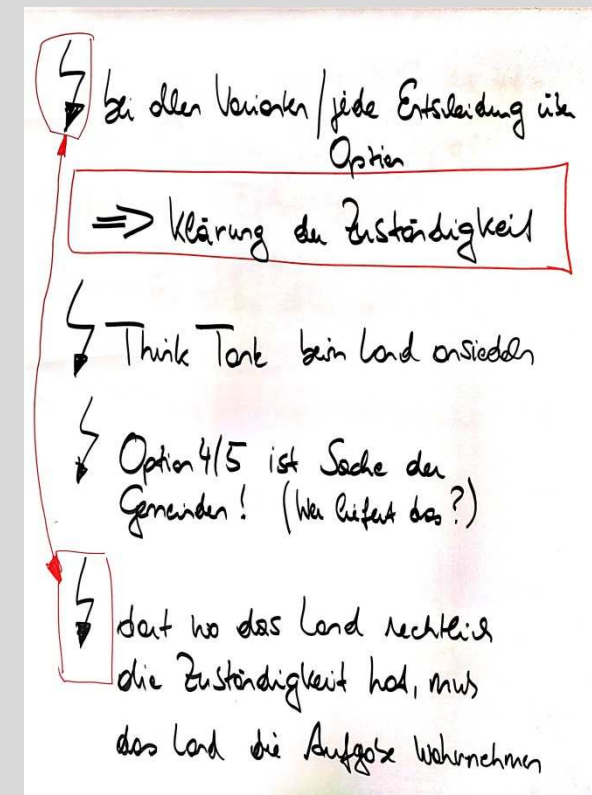 bei allen Varianten / jede Entscheidung über
Option
=> Klärung der Zuständigkeit
Think Tank beim Land ansiedeln
Option 4/5 ist Sache der
Gemeinden! (Wer liefert das?)
dort wo das Land rechtlich
die Zuständigkeit hat, muss
das Land die Aufgabe wahrnehmen